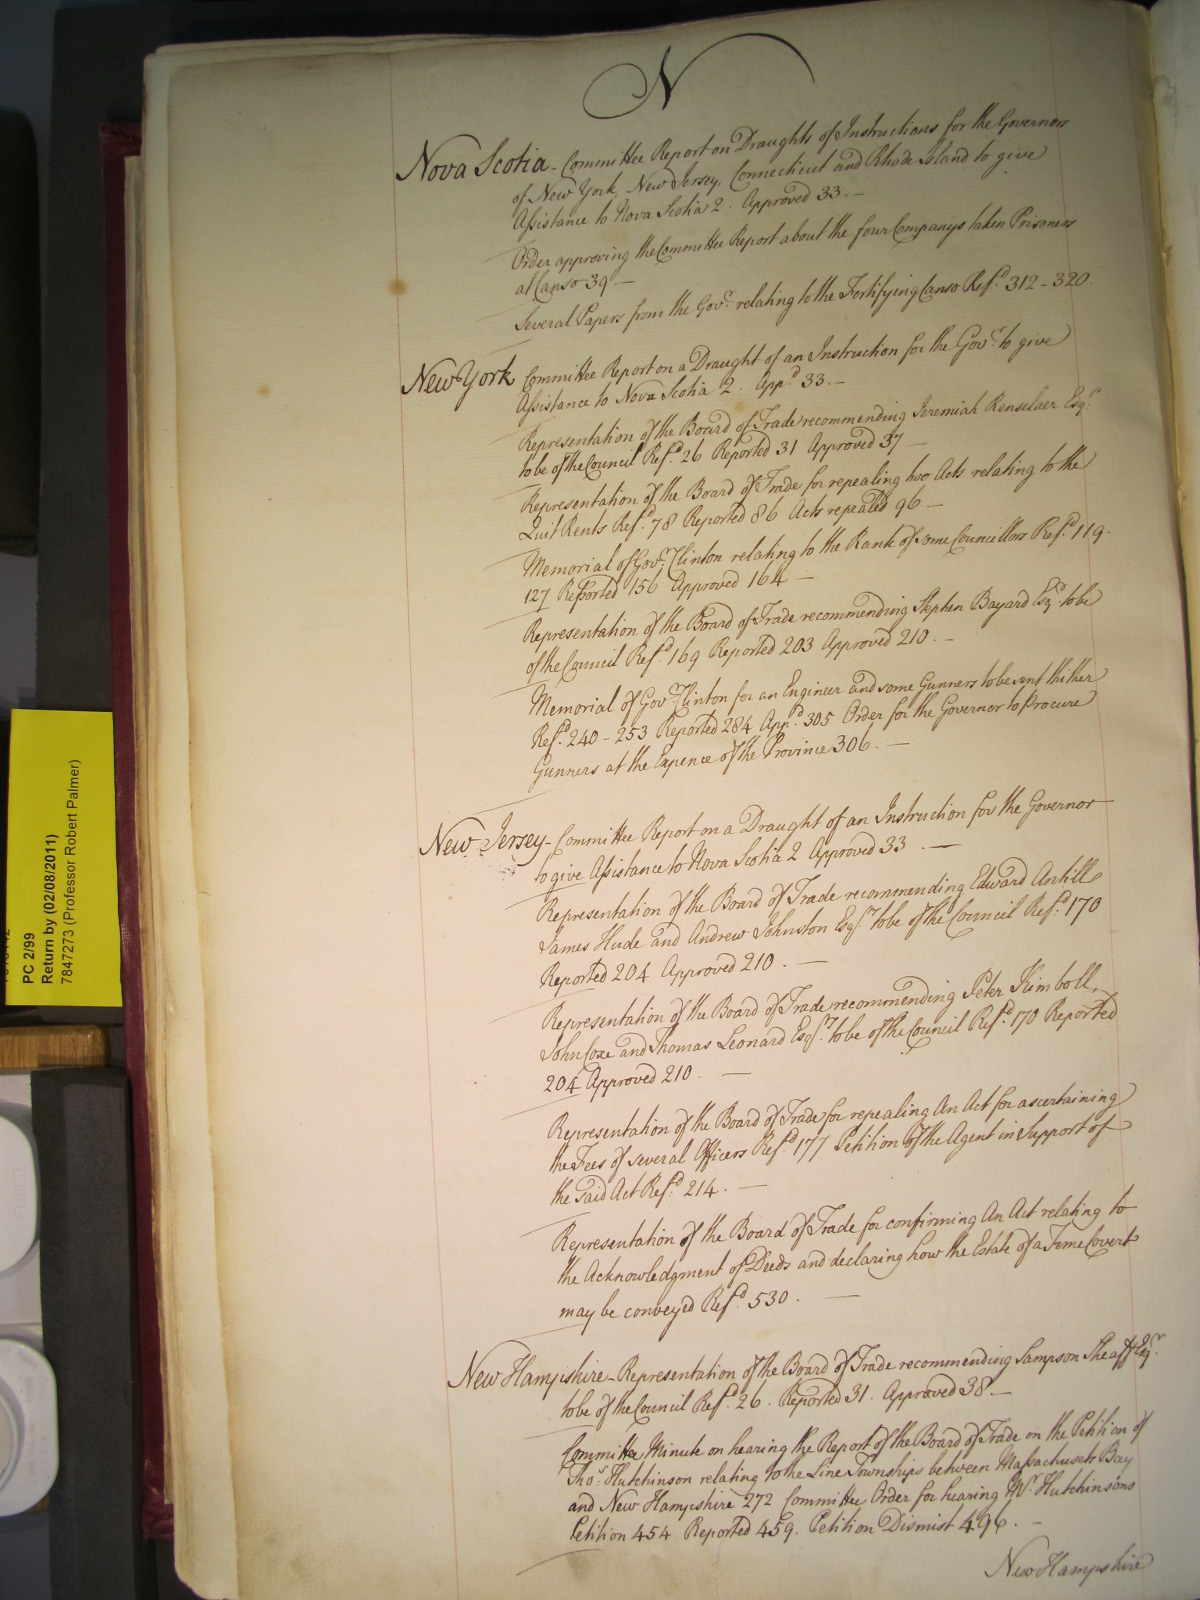 N
Nova Scotia - Committee Report on Draughts of Instructions for the Governors
of New York, New Jersey, Connecticut and Rhode Island to give
Assistance to Nova Scotia 2. Approved 33. -
Order approving the Committee Report about the four Companys taken Prisoners
at Canso 39. -
Several Papers from the Govr. relating to the Fortifying Canso Refd. 312 - 320.
New York Committee Report on a Draught of an Instruction for the Govr. to give
Assistance to Nova Scotia 2. Appd. 33. -
Representation of the Board of Trade recommending Jeremiah Renselaer Esqr.
to be of the Council Refd. 26 Reported 31 Approved 37 -
Representation of the Board of Trade for repealing two Acts relating to the
Quit Rents Refd. 78 Reported 86 Acts repealed 96 -
Memorial of Govr. Clinton relating to the Rank of some Councillors Refd. 119.
127 Reported 156 Approved 164 -
Representation of the Board of Trade recommending Stephen Bayard Esqr. to be
of the Council Refd. 169 Reported 203 Approved 210. -
Memorial of Govr. Clinton for an Engineer and some Gunners to be sent thither
Refd. 240 - 253 Reported 284 Appd. 305 Order for the Governor to Procure
Gunners at the Expence of the Province 306. -
New Jersey - Committee Report on a Draught of an Instruction for the Governor
to give Assistance to Nova Scotia 2 Approved 33. -
Representation of the Board of Trade recommending Edward Antill
James Hude and Andrew Johnston Esqrs. to be of the Council Refd. 170
Reported 204 Approved 210. -
Representation of the Board of Trade recommending Peter Kimboll,
John Coxe and Thomas Leonard Esqrs. to be of the Council Refd. 170 Reported
204 Approved 210. -
Representation of the Board of Trade for repealing An Act for ascertaining
the Fees of several Officers Refd. 177 Petition of the Agent in Support of
the said Act Refd. 214. -
Representation of the Board of Trade for confirming An Act relating to
the Acknowledgment of Deeds and declaring how the Estate of a Feme Covert
may be conveyed Refd. 530. -
New Hampshire - Representation of the Board of Trade recommending Sampson Sheaff Esqr.
to be of the Council Refd. 26. Reported 31. Approved 38 -
Committee Minute on hearing the Report of the Board of Trade on the Petition of
Thos. Hutchinson relating to the Line Townships between Massachusets Bay
and New Hampshire 272 Committee Order for hearing Mr. Hutchinsons
Petition 454 Reported 459. Petition Dismist 496. -
New Hampshire
PC 2/99
Return by (02/08/2011)
7847273 (Professor Robert Palmer)